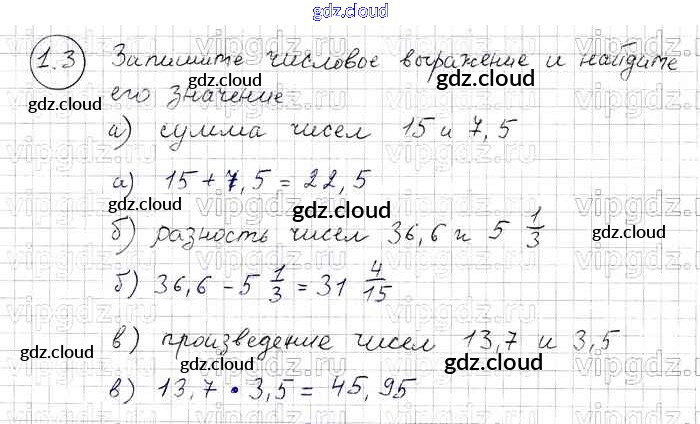 gdz.cloud
1.3 Запишите числовое выражение и найдите
его значение
а) сумма чисел 15 и 7,5
а) 15 + 7,5 = 22,5
б) разность чисел 36,6 и 5 1/3
б) 36,6 - 5 1/3 = 31 4/15
в) произведение чисел 13,7 и 3,5
в) 13,7 • 3,5 = 45,95
gdz.cloud
gdz.cloud
gdz.cloud
gdz.cloud
gdz.cloud
gdz.cloud
gdz.cloud
gdz.cloud
gdz.cloud
vipgdz.ru